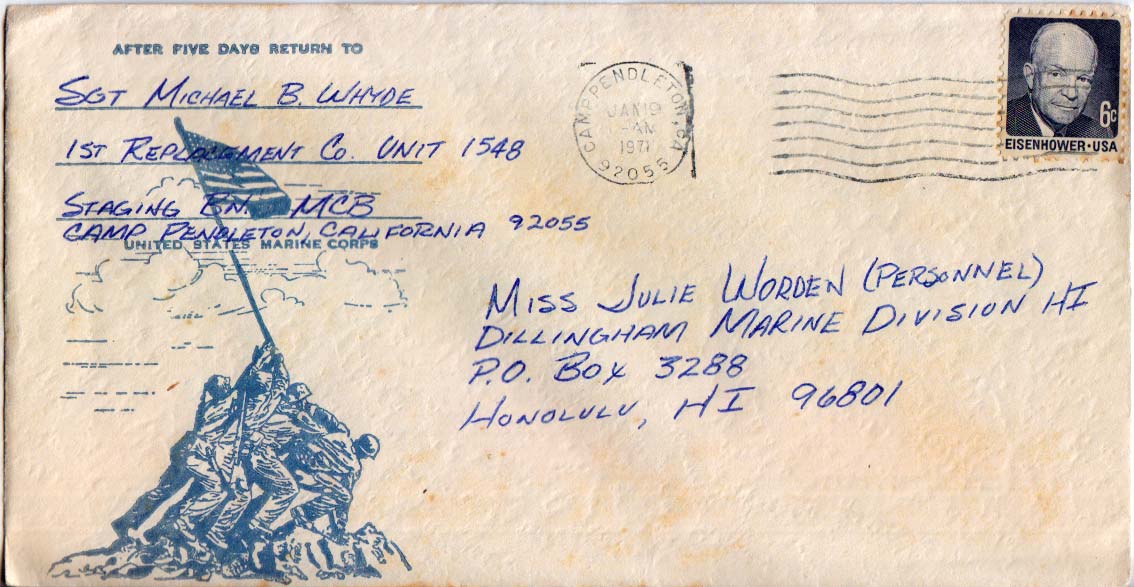 AFTER FIVE DAYS RETURN TO
SGT MICHAEL B. WHYDE
1ST REPLACEMENT CO. UNIT 1548
STAGING BN. MCB
CAMP PENDLETON, CALIFORNIA 92055
UNITED STATES MARINE CORPS
CAMP PENDLETON, CA
JAN 19
-AM
1971
92055
6c
EISENHOWER·USA
MISS JULIE WORDEN (PERSONNEL)
DILLINGHAM MARINE DIVISION HI
P.O. BOX 3288
HONOLULU, HI 96801